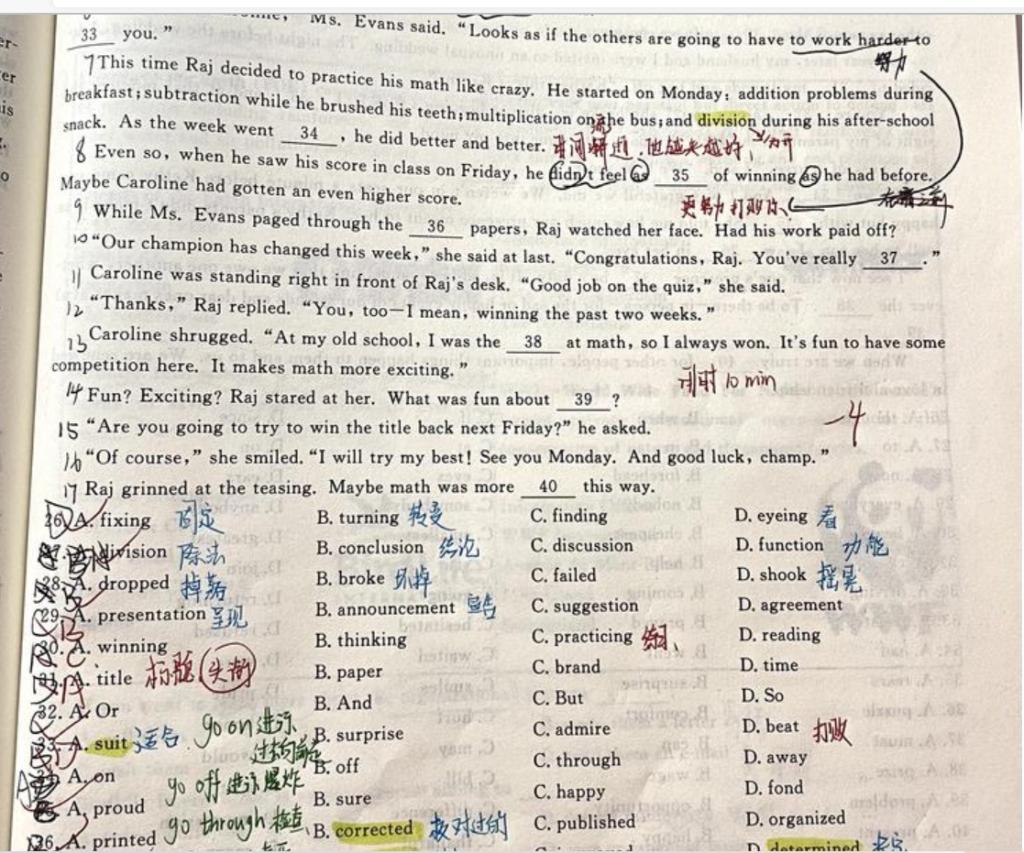 Ms. Evans said. “Looks as if the others are going to have to work harder to
33 you.”
努力
7 This time Raj decided to practice his math like crazy. He started on Monday: addition problems during
breakfast; subtraction while he brushed his teeth; multiplication on the bus; and division during his after-school
snack. As the week went 34, he did better and better. 时间 他越来越好 分开
8 Even so, when he saw his score in class on Friday, he didn't feel as 35 of winning as he had before.
Maybe Caroline had gotten an even higher score. 更努力打败你
9 While Ms. Evans paged through the 36 papers, Raj watched her face. Had his work paid off?
10 “Our champion has changed this week,” she said at last. “Congratulations, Raj. You've really 37.”
11 Caroline was standing right in front of Raj's desk. “Good job on the quiz,” she said.
12 “Thanks,” Raj replied. “You, too—I mean, winning the past two weeks.”
13 Caroline shrugged. “At my old school, I was the 38 at math, so I always won. It's fun to have some
competition here. It makes math more exciting.”
用时 10 min
14 Fun? Exciting? Raj stared at her. What was fun about 39?
-4
15 “Are you going to try to win the title back next Friday?” he asked.
16 “Of course,” she smiled. “I will try my best! See you Monday. And good luck, champ.”
17 Raj grinned at the teasing. Maybe math was more 40 this way.
26. A. fixing 固定 B. turning 转变 C. finding D. eyeing 看
A. division 除法 B. conclusion 结论 C. discussion D. function 功能
28. A. dropped 掉落 B. broke 坏掉 C. failed D. shook 摇晃
29. A. presentation 呈现 B. announcement 宣告 C. suggestion D. agreement
30. A. winning B. thinking C. practicing D. reading
A. title 标题 头衔 B. paper C. brand D. time
32. A. Or B. And C. But D. So
33. A. suit 适合 go on 进行 B. surprise C. admire D. beat 打败
A. on go off 进行 爆炸 B. off C. through D. away
A. proud B. sure C. happy D. fond
36. A. printed go through 检查 B. corrected 核对过的 C. published D. organized
D. determined